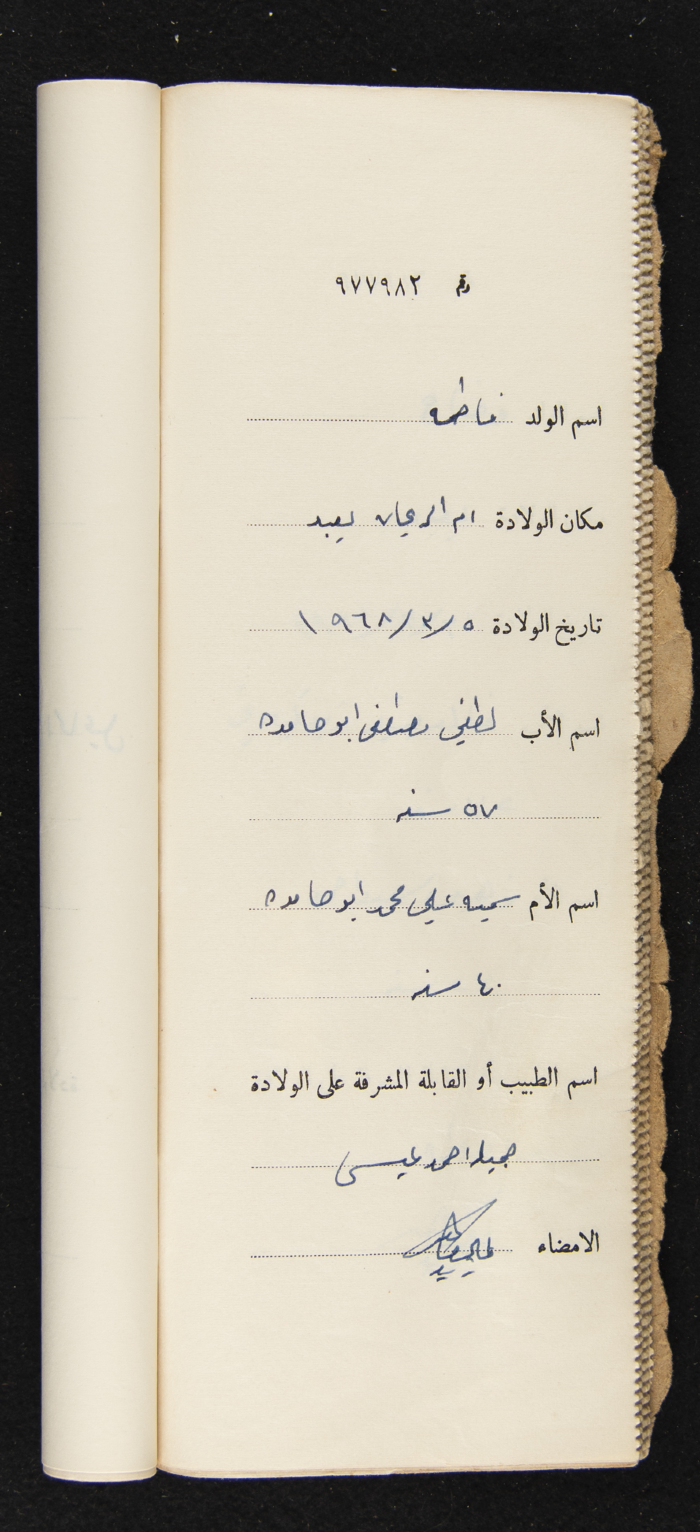 رقم ٩٧٧٩٨٢
اسم الولد فاطمه
مكان الولادة ام الريحان يعبد
تاريخ الولادة ٥/٣/١٩٦٨
اسم الأب لطفي مصطفى ابو حامده
٥٧ سنه
اسم الأم سميه علي محمد ابو حامده
٤٠ سنه
اسم الطبيب أو القابلة المشرفة على الولادة
جميله احمد عيسى
الامضاء